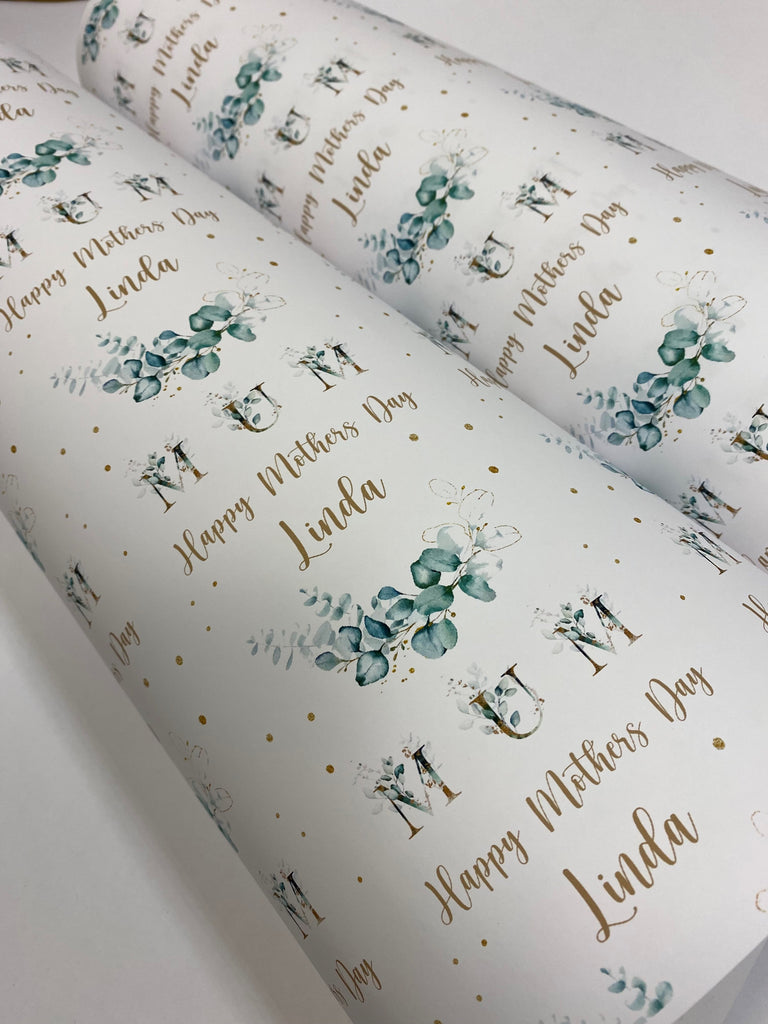 MUM
Happy Mothers Day
Linda
MUM
Happy Mothers Day
Linda
MUM
Happy Mothers Day
Linda
MUM
Happy Mothers Day
Linda
MUM
Happy Mothers Day
Linda
MUM
Happy Mothers Day
Linda